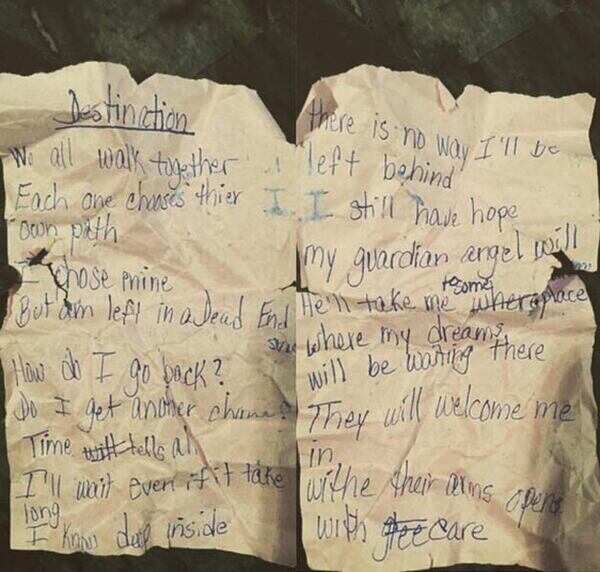 Destination
We all walk together
Each one chooses thier
own path
I chose mine
But am left in a Dead End
How do I go back?
Do I get another chance?
Time will tells all
I'll wait even if it take
long
I know deep inside
there is no way I'll be
left behind
I I still have hope
my guardian angel will
He'll take me to some where place
where my dreams
will be waiting there
They will welcome me
in
withe their arms open
with care